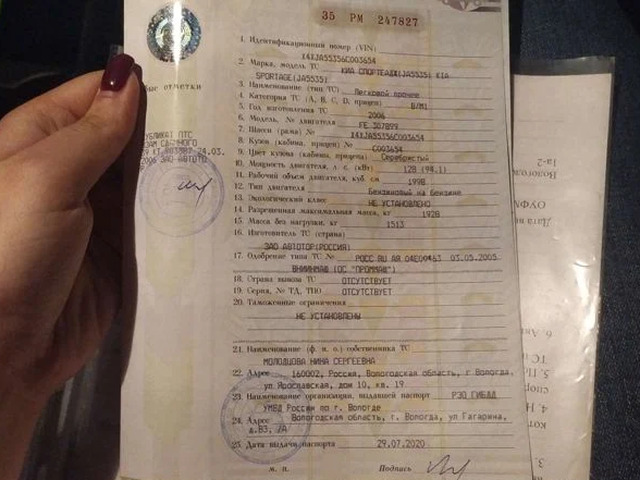 35 РМ 247827
1. Идентификационный номер (VIN)
X4XJA55356C003654
2. Марка, модель ТС КИА СПОРТЕАДЖ(JA5535) KIA
SPORTAGE(JA5535)
3. Наименование (тип ТС) Легковой прочие
4. Категория ТС (А, В, С, D, прицеп) В/М1
5. Год изготовления ТС 2006
6. Модель, № двигателя FE 307899
7. Шасси (рама) № X4XJA55356C003654
8. Кузов (кабина, прицеп) № C003654
9. Цвет кузова (кабины, прицепа) Серебристый
10. Мощность двигателя, л. с. (кВт) 128 (94.1)
11. Рабочий объем двигателя, куб. см 1998
12. Тип двигателя Бензиновый на бензине
13. Экологический класс НЕ УСТАНОВЛЕНО
14. Разрешенная максимальная масса, кг 1928
15. Масса без нагрузки, кг 1513
16. Изготовитель ТС (страна)
ЗАО АВТОТОР(РОССИЯ)
17. Одобрение типа ТС № РОСС RU АЯ 04Е00463 03.05.2005
ВНИИНМАШ (ОС "ПРОММАШ")
18. Страна вывоза ТС ОТСУТСТВУЕТ
19. Серия, № ТД, ТПО ОТСУТСТВУЕТ
20. Таможенные ограничения
НЕ УСТАНОВЛЕНЫ
21. Наименование (ф. и. о.) собственника ТС
МОЛОДЦОВА НИНА СЕРГЕЕВНА
22. Адрес 160002, Россия, Вологодская область, г Вологда,
ул Ярославская, дом 10, кв. 19
23. Наименование организации, выдавшей паспорт РЭО ГИБДД
УМВД России по г. Вологде
24. Адрес Вологодская область, г Вологда, ул Гагарина,
д.83, /А
25. Дата выдачи паспорта 29.07.2020
М. П. Подпись
бые отметки
УБЛИКАТ ПТС
ЗАМ СДАННОГО
24.03.
2006 ЗАО АВТОТО